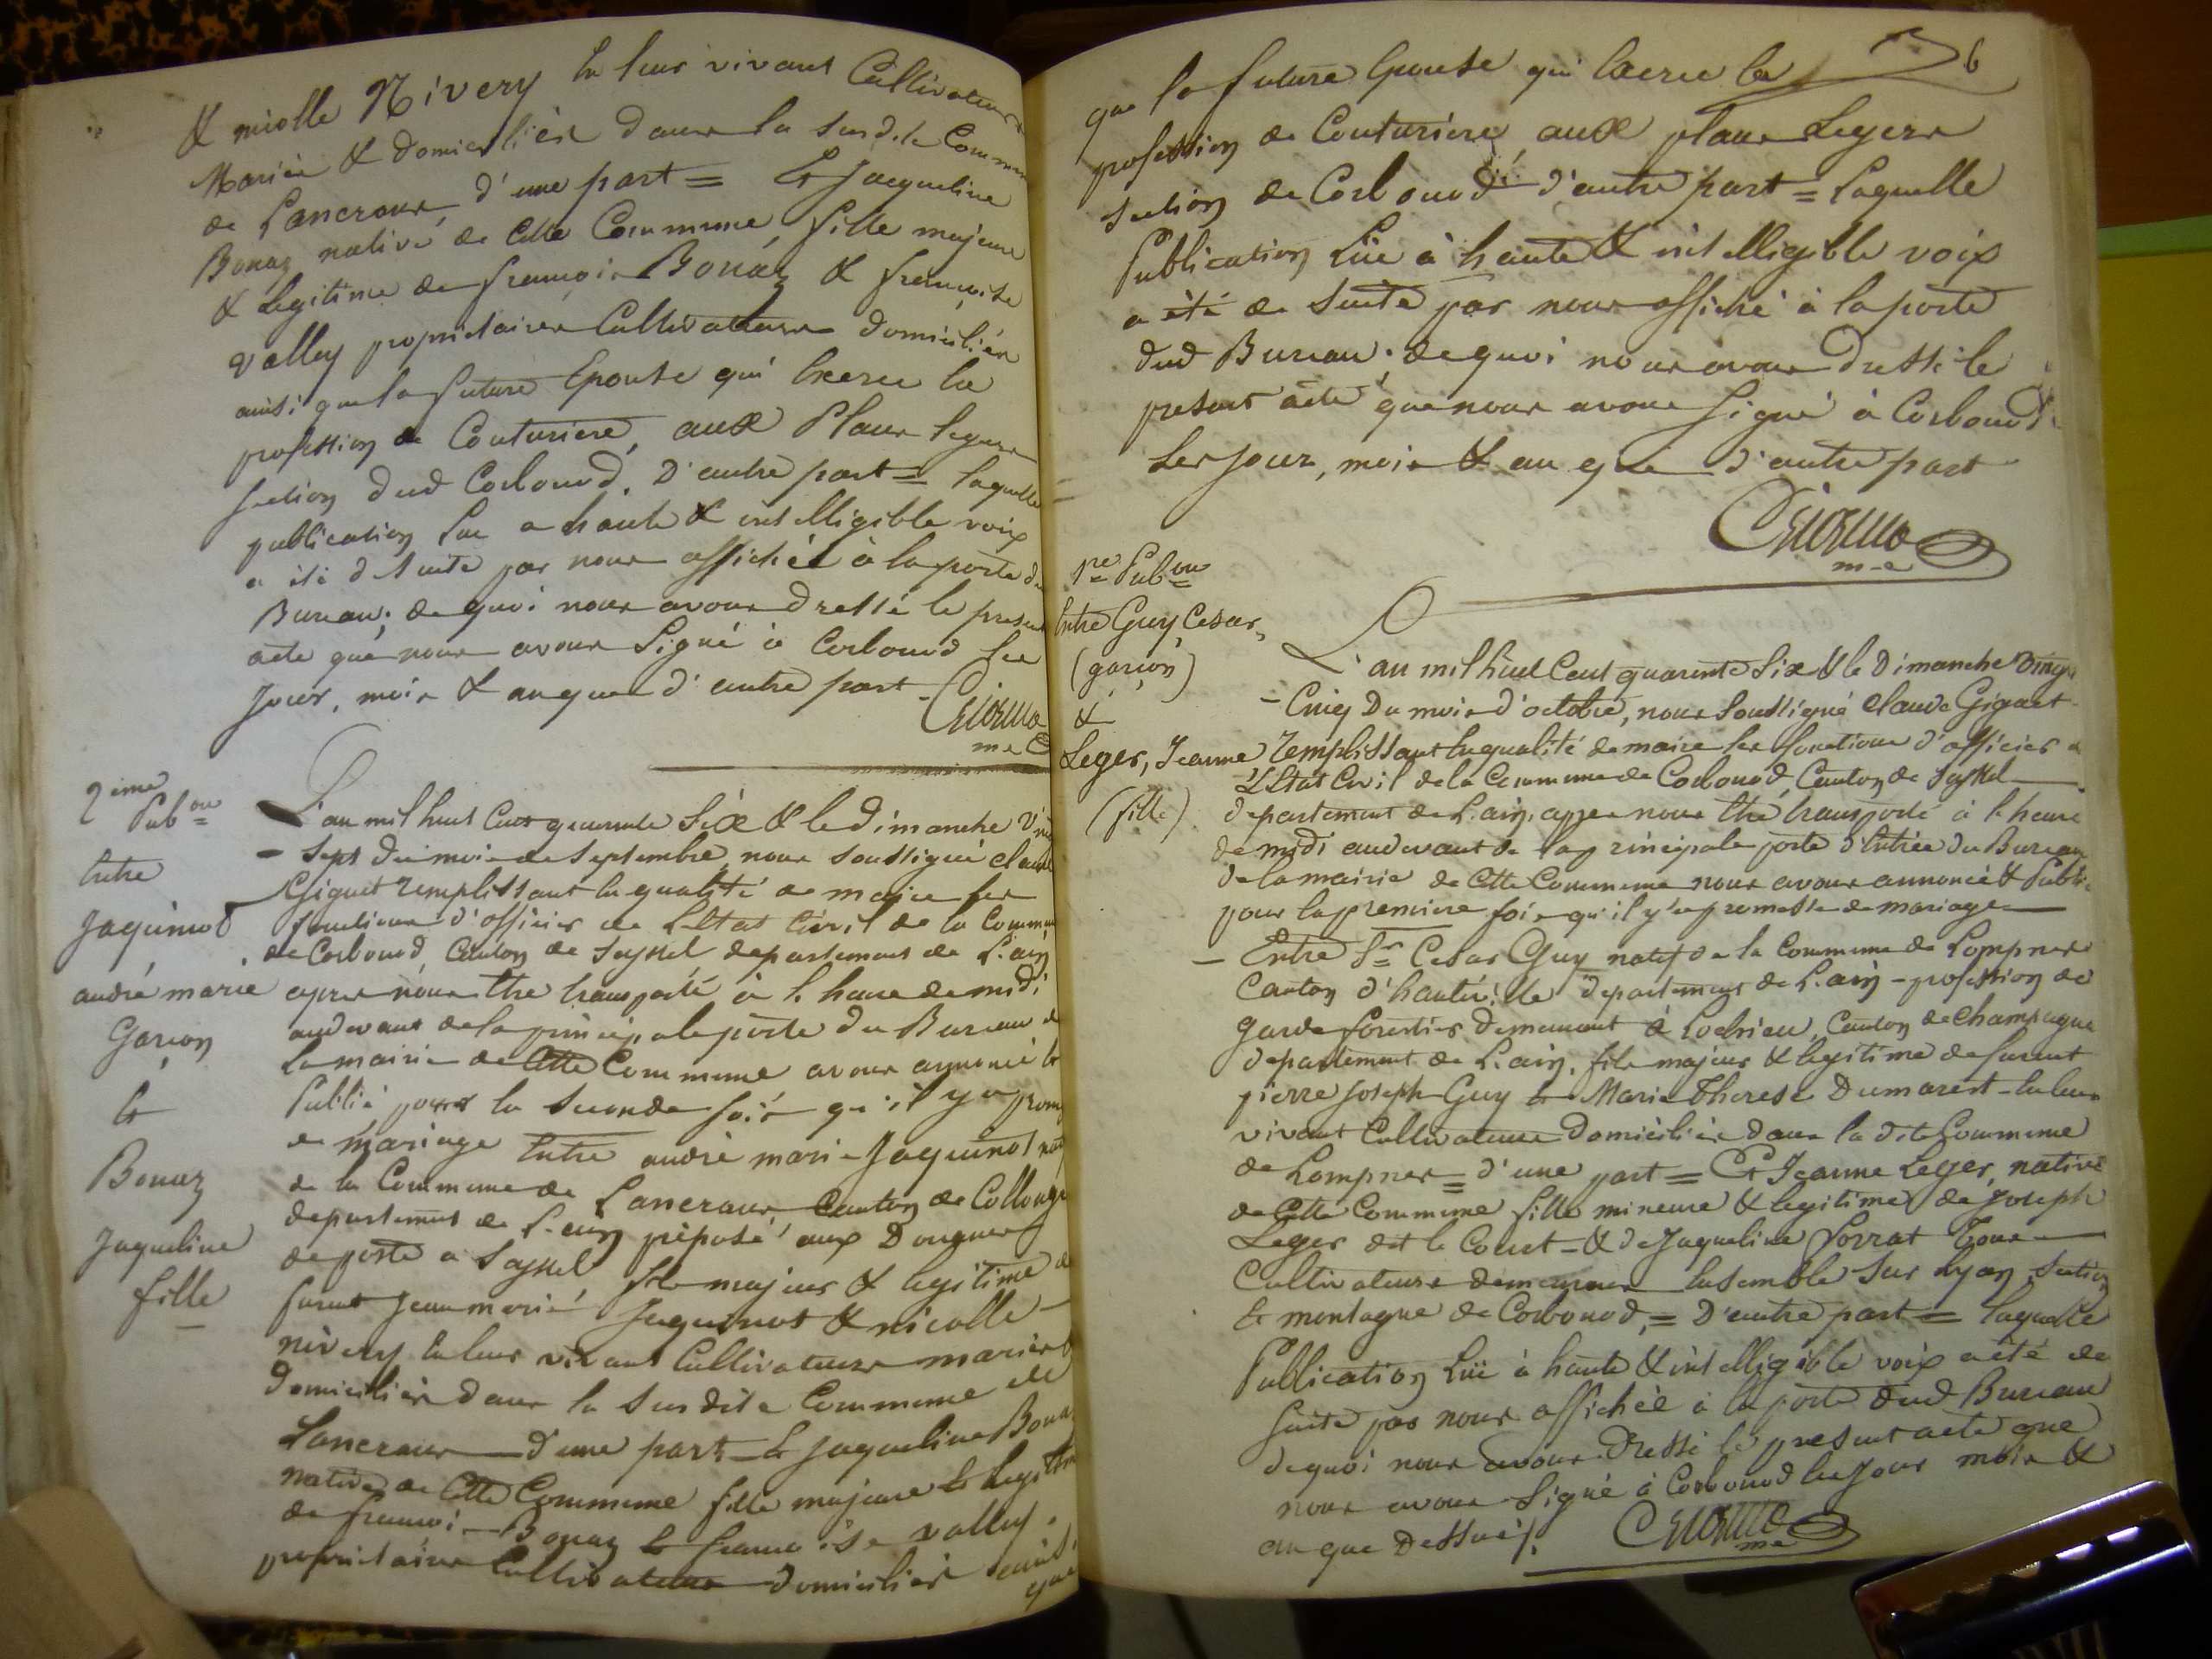 & nicolle Nivery en leur vivant Cultivateurs
Mariés & domiciliés dans la susdite Commune
de Lancrans, d'une part = Et Jacqueline
Bonaz native de cette Commune, fille majeure
& legitime de françois Bonaz & françoise
Vallay propriétaires Cultivateurs domiciliés
ainsi que la future Epouse qui Exerce la
profession de Couturiere, aux Plans legers
section dud Corbonod. D'autre part = laquelle
publication lue a haute & intelligible voix
a été de suite par nous affichée à la porte du
Bureau; de quoi nous avons dressé le present
acte que nous avons signé à Corbonod les
jour, mois & an que d'autre part
m-e
2eime
Pubon
Entre
Jaquinot
andré marie
Garçon
Et
Bonaz
Jaqueline
fille
L'an mil huit Cent quarante Six & le dimanche Vingt
- Sept du mois de Septembre, nous soussigné claude
Giguet remplissant en qualité de maire les
fonctions d'officier de L'Etat Civil de la Commune
de Corbonod, Canton de Seyssel departement de L'ain
apres nous Etre transporté à l'heure de midi
audevant de la principale porte du Bureau de
la mairie de Cette Commune avons annoncé et
Publié pour la seconde fois qu'il y a prom
de mariage Entre andré marie Jaquinot natif
de la Commune de Lancrans Canton de Collonges
departement de L'ain préposé aux Douanes
de poste a Seyssel fils majeur & legitime de
furent Jean marie Jaquinot & nicolle
nivery en leur vivant Cultivateurs mariés &
Domiciliés dans la susdite Commune de
Lancrans d'une part Et Jaqueline Bonaz
native de Cette Commune fille majeure Et legitime
de françois Bonaz Et françoise vallay
propriétaires Cultivateurs domiciliés ainsi
que
6
que la future Epouse qui Exerce la
profession de Couturiere, aux plans Legers
section de Corbonod d'autre part = Laquelle
Publication Lüe à haute & intelligible voix
a été de suite par nous affiché à la porte
dud Bureau; de quoi nous avons dressé le
présent acte que nous avons signé à Corbonod
Les jour, mois & an que d'autre part
m-e
1re Pubon
Entre Guy Cesar,
(garçon)
&
Leger, Jeanne
(fille)
L'an mil huit Cent quarante Six & le Dimanche Vingt
- Cinq Du mois d'octobre, nous soussigné claude Giguet
remplissant en qualité de maire les fonctions d'officier de
L'Etat Civil de la Commune de Corbonod, Canton de Seyssel
departement de L'ain, apres nous Etre transporté à l'heure
de midi audevant de la principale porte d'Entrée du Bureau
de la mairie de Cette Commune nous avons annoncé & Publié
pour la premiere fois qu'il y a promesse de mariage
- Entre Sr Cesar Guy natif de la Commune de Lompnes
Canton d'hauteville departement de L'ain - profession de
Garde forestier demeurant à Lochieu, Canton de Champagne
departement de L'ain, fils majeur & legitime de furent
pierre joseph Guy Et Marie Therese Dumarest - en leur
vivant Cultivateurs domiciliés dans la dite Commune
de Lompnes = d'une part = Et Jeanne Leger, native
de Cette Commune fille mineure & legitime de Joseph
Leger dit le Court - & de Jaqueline forrat Tous
Cultivateurs demeurans Ensemble Sur Lyon, Section
Et montagne de Corbonod, = D'autre part = laquelle
Publication Lüe à haute & intelligible voix a été de
suite par nous affichée à la porte dud Bureau
de quoi nous avons dressé le present acte que
nous avons Signé à Corbonod les jour mois &
an que Dessus/.
m-e